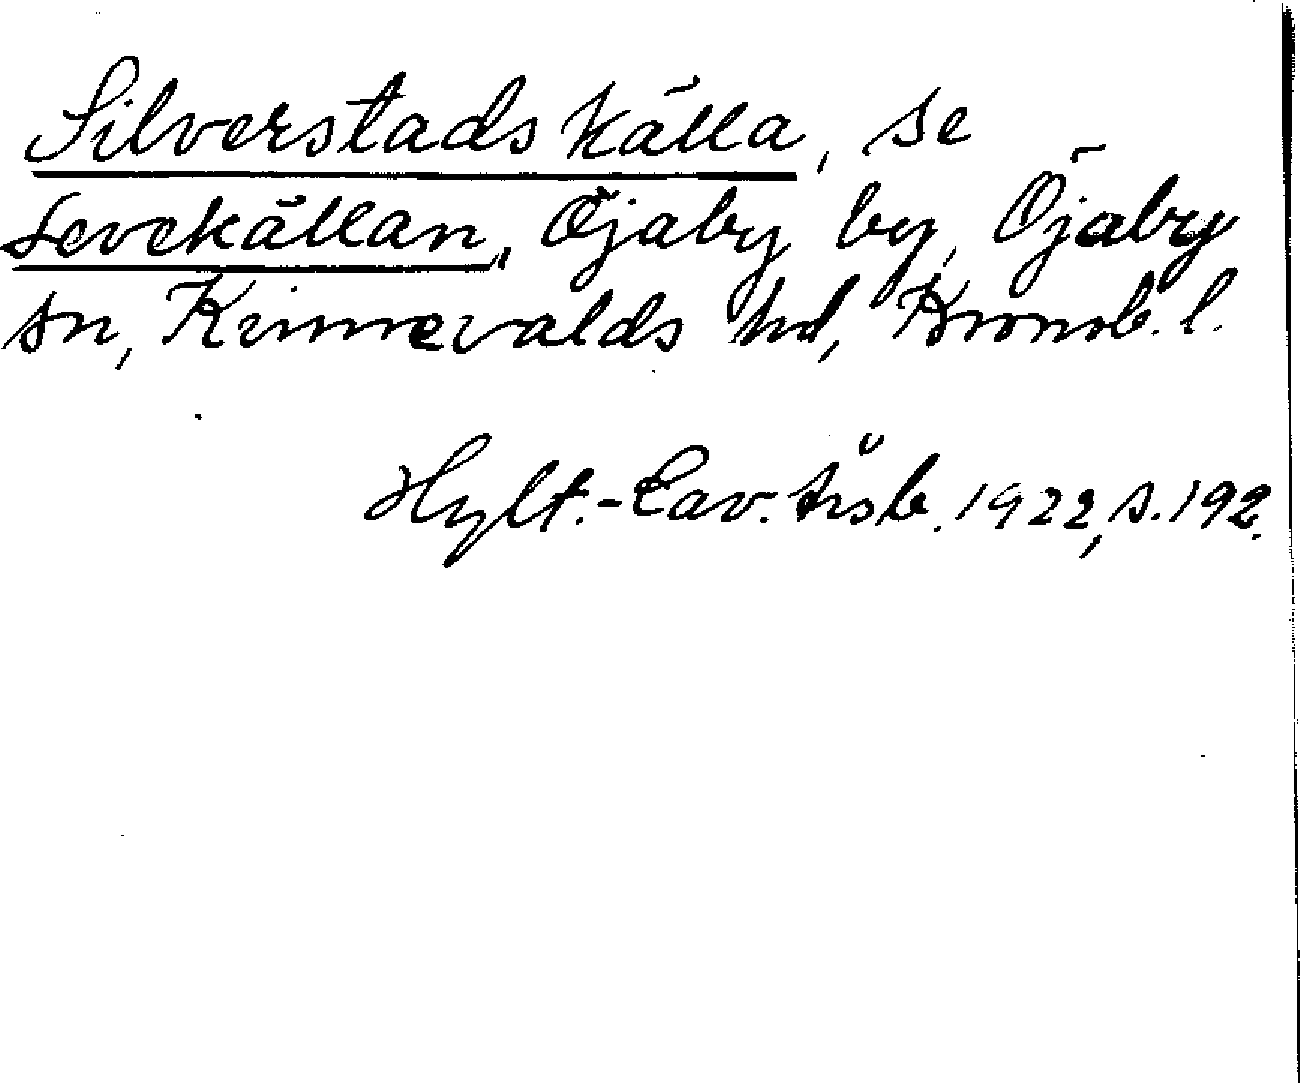 Silverstads källa, se
Levekällan, Öjaby by, Öjaby
sn, Kinnevalds hd, Kronob. l.
Hylt.-Cav. årsb. 1922, s. 192.